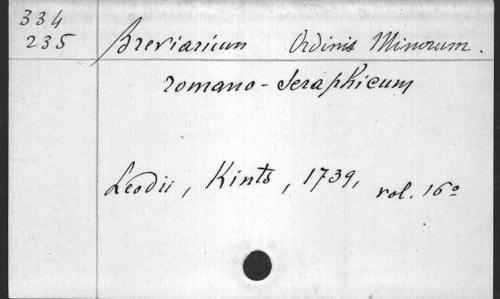 334
235
Breviarium Ordinis Minorum.
romano-Seraphicum
Leodii, Kints, 1739, vol. 16º